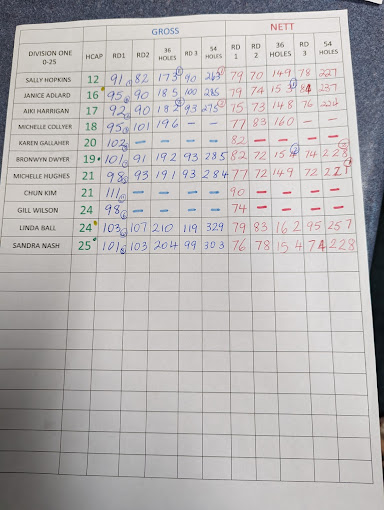 GROSS NETT
DIVISION ONE 0-25 HCAP RD1 RD2 36 HOLES RD 3 54 HOLES RD 1 RD 2 36 HOLES RD 3 54 HOLES
SALLY HOPKINS 12 91 82 173 90 263 79 70 149 78 227
JANICE ADLARD 16 95 90 185 100 285 79 74 153 84 237
AIKI HARRIGAN 17 92 90 182 93 275 75 73 148 76 224
MICHELLE COLLYER 18 95 101 196 — — 77 83 160 — —
KAREN GALLAHER 20 102 — — — — 82 — — — —
BRONWYN DWYER 19 101 91 192 93 285 82 72 154 74 228
MICHELLE HUGHES 21 98 93 191 93 284 77 72 149 72 221
CHUN KIM 21 111 — — — — 90 — — — —
GILL WILSON 24 98 — — — — 74 — — — —
LINDA BALL 24 103 107 210 119 329 79 83 162 95 257
SANDRA NASH 25 101 103 204 99 303 76 78 154 74 228